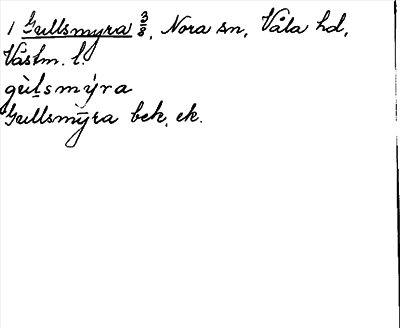 1 Gullsmyra 3/8, Nora sn, Våla hd,
Västm. l.
gùḷsmýra
Gullsmȳra bek, ek.